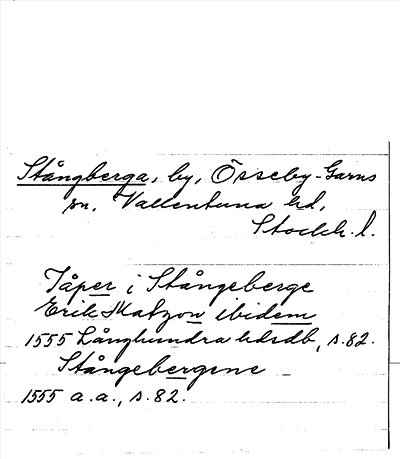 Stångberga, by, Össeby-Garns
sn, Vallentuna hd,
Stockh. l.
Jåper i Stångeberge
Erik Matzon ibidem
1555 Långhundra hdsdb, s. 82.
Stångebergene
1555 a.a., s. 82.